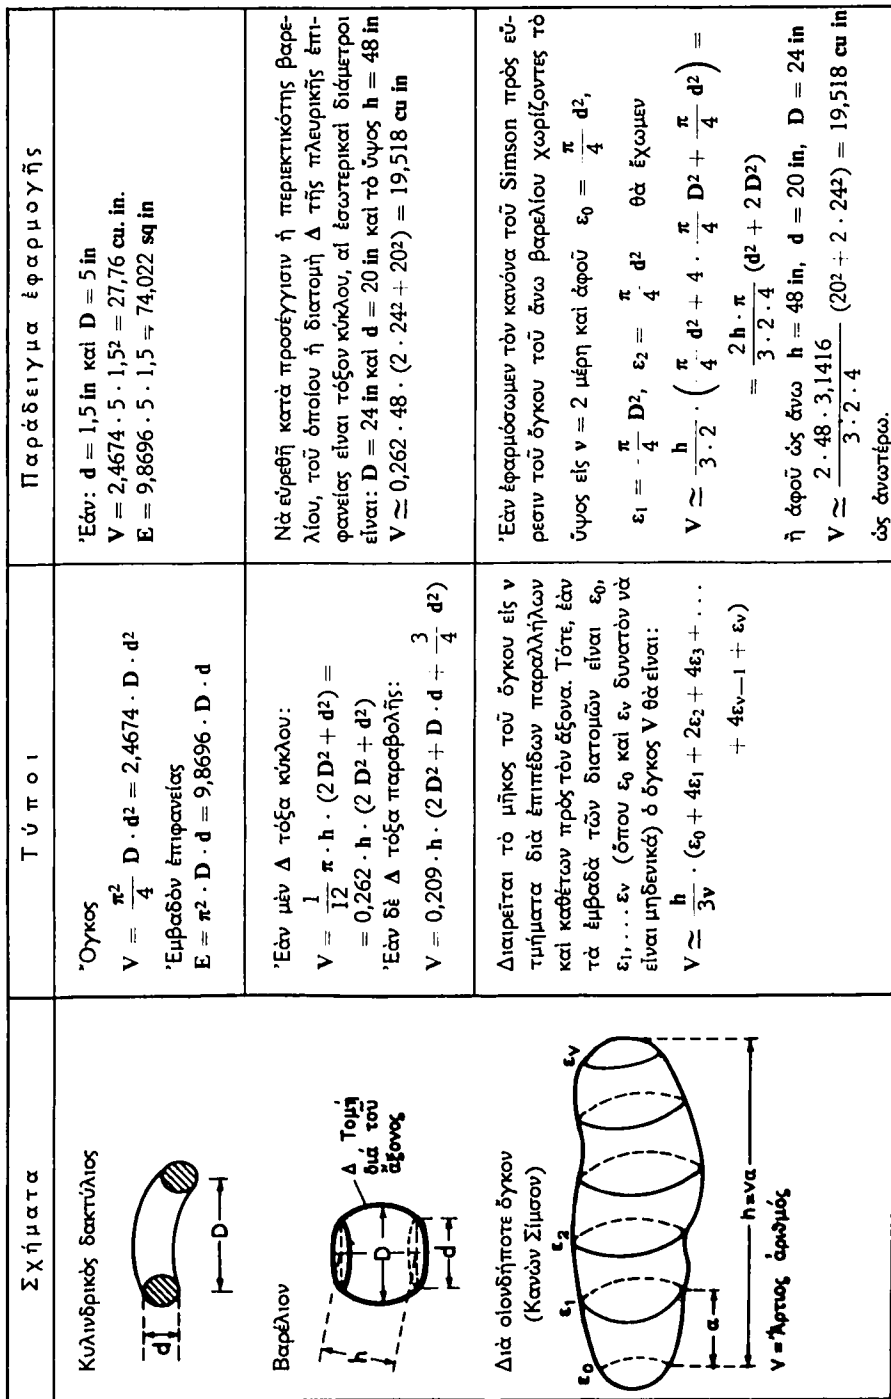 Σχήματα
Τύποι
Παράδειγμα ἐφαρμογῆς
Κυλινδρικὸς δακτύλιος
d
D
Ὄγκος
V = π²/4 D · d² = 2,4674 · D · d²
Ἐμβαδὸν ἐπιφανείας
E = π² · D · d = 9,8696 · D · d
Ἐάν: d = 1,5 in καὶ D = 5 in
V = 2,4674 · 5 · 1,5² = 27,76 cu. in.
E = 9,8696 · 5 · 1,5 = 74,022 sq in
Βαρέλιον
h
D
d
Δ Τομή
διά τοῦ
ἄξονος
Ἐὰν μὲν Δ τόξα κύκλου:
V = 1/12 π · h · (2 D² + d²) =
= 0,262 · h · (2 D² + d²)
Ἐὰν δὲ Δ τόξα παραβολῆς:
V = 0,209 · h · (2D² + D · d + 3/4 d²)
Νὰ εὑρεθῆ κατὰ προσέγγισιν ἡ περιεκτικότης βαρε-
λίου, τοῦ ὁποίου ἡ διατομὴ Δ τῆς πλευρικῆς ἐπι-
φανείας εἶναι τόξον κύκλου, αἱ ἐσωτερικαὶ διάμετροι
εἶναι: D = 24 in καὶ d = 20 in καὶ τὸ ὕψος h = 48 in
V ≃ 0,262 · 48 · (2 · 24² + 20²) = 19,518 cu in
Διὰ οἱονδήποτε ὄγκον
(Κανὼν Σίμσον)
ε₀
ε₁
ε₂
εν
α
h=να
V = Ἄρτιος ἀριθμός
Διαιρεῖται τὸ μῆκος τοῦ ὄγκου εἰς ν
τμήματα διὰ ἐπιπέδων παραλλήλων
καὶ καθέτων πρὸς τὸν ἄξονα. Τότε, ἐὰν
τὰ ἐμβαδὰ τῶν διατομῶν εἶναι ε₀,
ε₁, ... εν (ὅπου ε₀ καὶ εν δυνατὸν νὰ
εἶναι μηδενικά) ὁ ὄγκος V θὰ εἶναι:
V ≃ h/3ν · (ε₀ + 4ε₁ + 2ε₂ + 4ε₃ + ...
+ 4εν—1 + εν)
Ἐὰν ἐφαρμόσωμεν τὸν κανόνα τοῦ Simson πρὸς εὕ-
ρεσιν τοῦ ὄγκου τοῦ ἄνω βαρελίου χωρίζοντες τὸ
ὕψος εἰς ν = 2 μέρη καὶ ἀφοῦ ε₀ = π/4 d²,
ε₁ = π/4 D², ε₂ = π/4 d² θὰ ἔχωμεν
V ≃ h/3 · 2 · (π/4 d² + 4 · π/4 D² + π/4 d²) =
= 2 h · π/3 · 2 · 4 (d² + 2 D²)
ἢ ἀφοῦ ὡς ἄνω h = 48 in, d = 20 in, D = 24 in
V ≃ 2 · 48 · 3,1416/3 · 2 · 4 (20² + 2 · 24²) = 19,518 cu in
ὡς ἀνωτέρω.